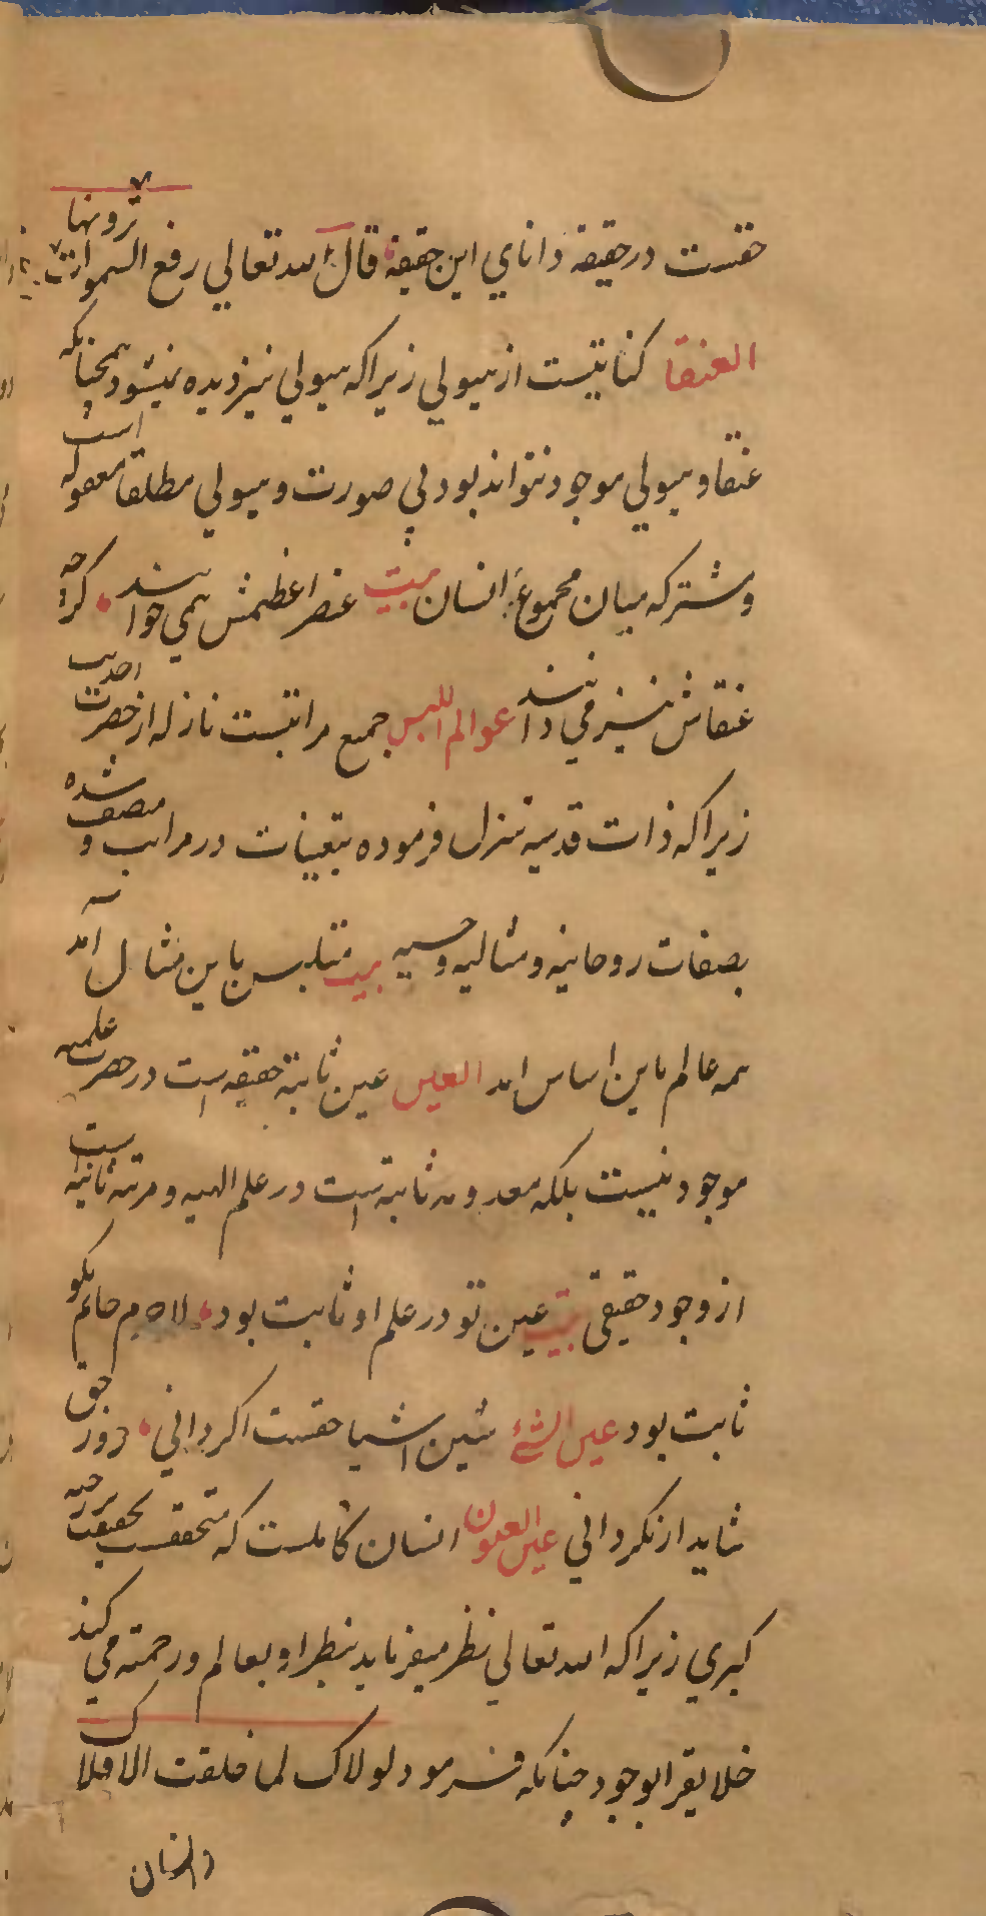 حقست در حقیقة دانای این حقیقة قال الله تعالی رفع السموات ترونها
العنقا کنایتست از هیولی زیراکه هیولی نیز دیده نمیشود همچنانکه
عنقا و هیولی موجود نتواند بود بی صورت و هیولی مطلقا معقوله است
و مشترکه میان مجموع انسان بیت عنصر اعظمش همی خوانند کرچه
عنقاش نیز می دانند عوالم اللبس جمیع مراتبست نازله از حضرت احدیت
زیراکه ذات قدسیه تنزل فرموده بتعینات در مراتب و متصف شده
بصفات روحانیه و مثالیه و حسیه بیت متلبس باین مثال آمد
همه عالم باین اساس امد العین عین ثابتة حقیقه است در حضرت علمیه
موجود نیست بلکه معدومه ثابته است در علم الهیه و مرتبه ثانیه است
از وجود حقیقی بیت عین تو در علم او ثابت بود حالم بکو
ثابت بود عین الشئ عین اشیا حقست اکر دانی حق
شاید از نکردانی عین العیون انسان کاملست که متحقق بحقیقت برزخیه
کبری زیراکه الله تعالی نظر میفرماید بنظر او بعالم و رحمة می کند
خلایق را بوجود چنانکه فرمود لولاک لما خلقت الافلاک
والانسان